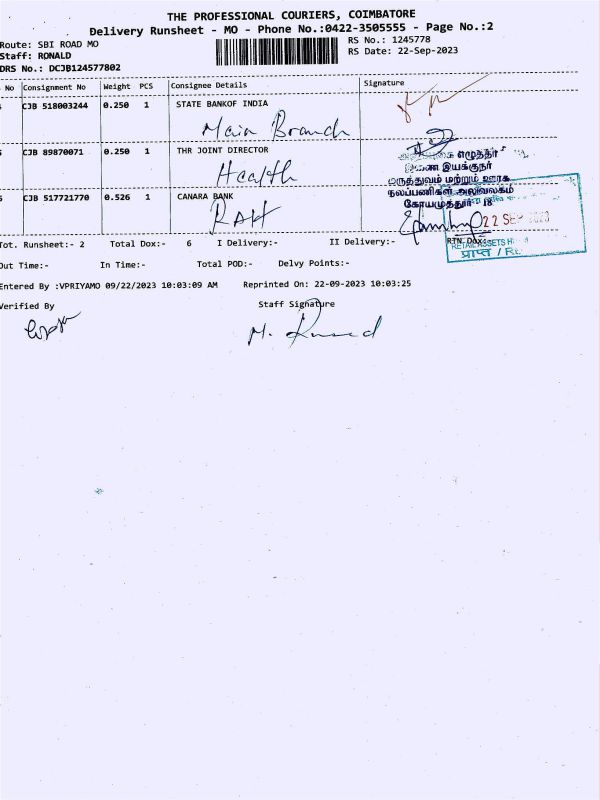 THE PROFESSIONAL COURIERS, COIMBATORE
Delivery Runsheet - MO - Phone No.:0422-3505555 - Page No.:2
Route: SBI ROAD MO
RS No.: 1245778
Staff: RONALD
RS Date: 22-Sep-2023
DRS No.: DCJB124577802
No Consignment No Weight PCS Consignee Details Signature
CJB 518003244 0.250 1 STATE BANKOF INDIA
Main Branch
CJB 89870071 0.250 1 THR JOINT DIRECTOR
Health
எழுத்தர்
இணை இயக்குநர்
மருத்துவம் மற்றும் ஊரக
நலப்பணிகள் அலுவலகம்
கோயமுத்தூர் 18
CJB 517721770 0.526 1 CANARA BANK
RAH
22 SEP 2023
Tot. Runsheet:- 2 Total Dox:- 6 I Delivery:- II Delivery:- RTN Dox:-
RETAIL ASSETS H
प्राप्त / RE
Out Time:- In Time:- Total POD:- Delvy Points:-
Entered By :VPRIYAMO 09/22/2023 10:03:09 AM Reprinted On: 22-09-2023 10:03:25
Verified By Staff Signature